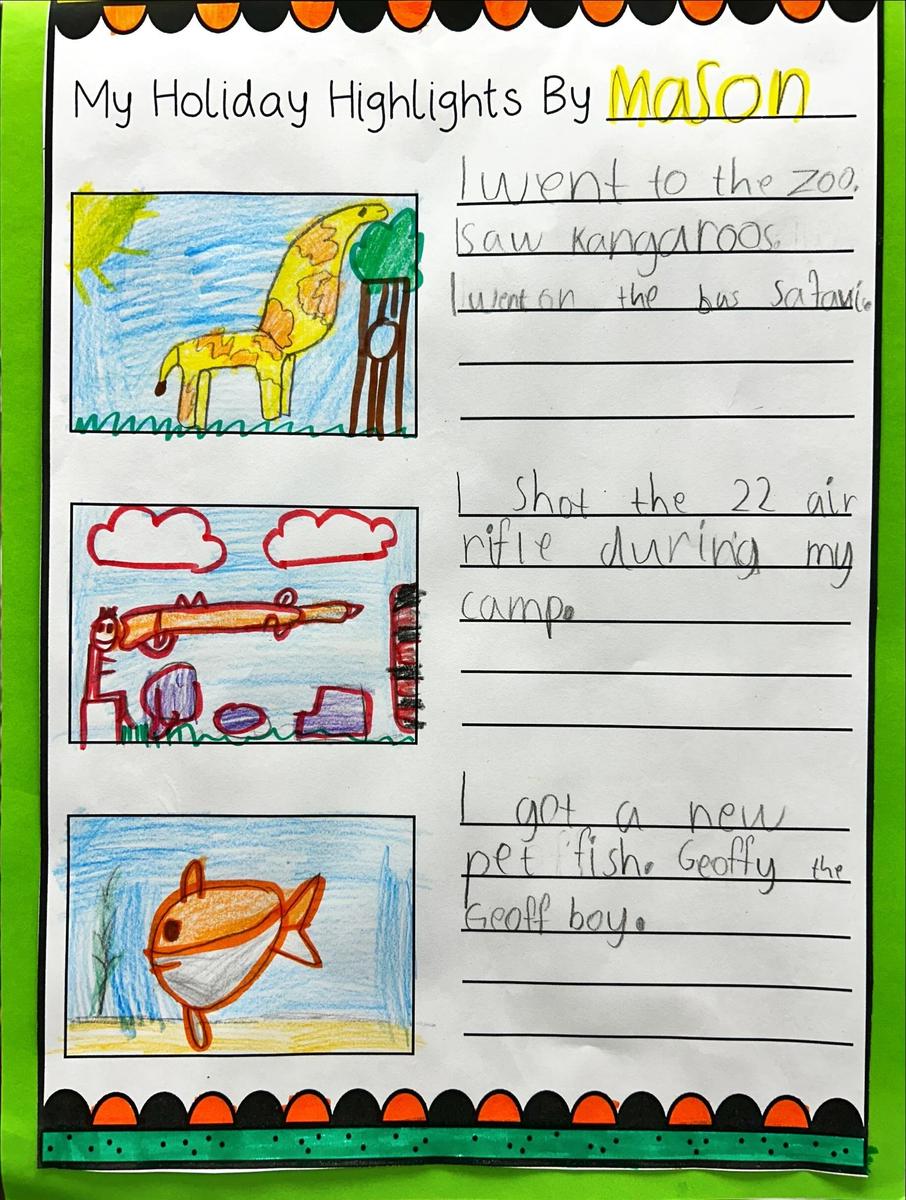 My Holiday Highlights By Mason
I went to the zoo.
I saw kangaroos.
I went on the bus safari.
I shot the 22 air
rifle during my
camp.
I got a new
pet fish. Geoffy the
Geoff boy.